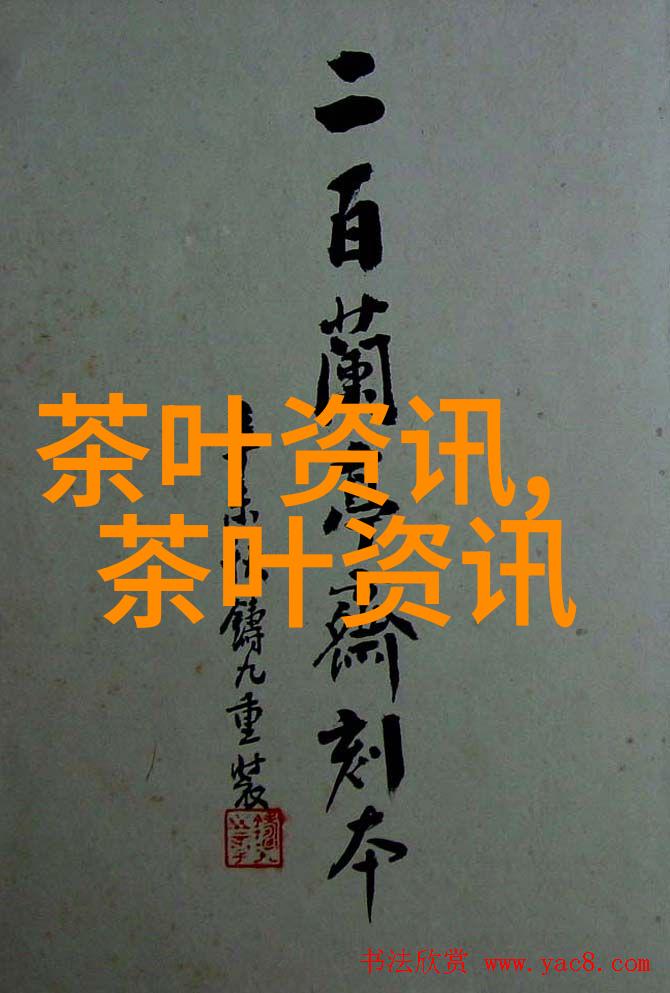 二百蘭亭齋刻本
辛未鑄九重裝
茶叶资讯,
茶叶资讯
书法欣赏 www.yac8.com